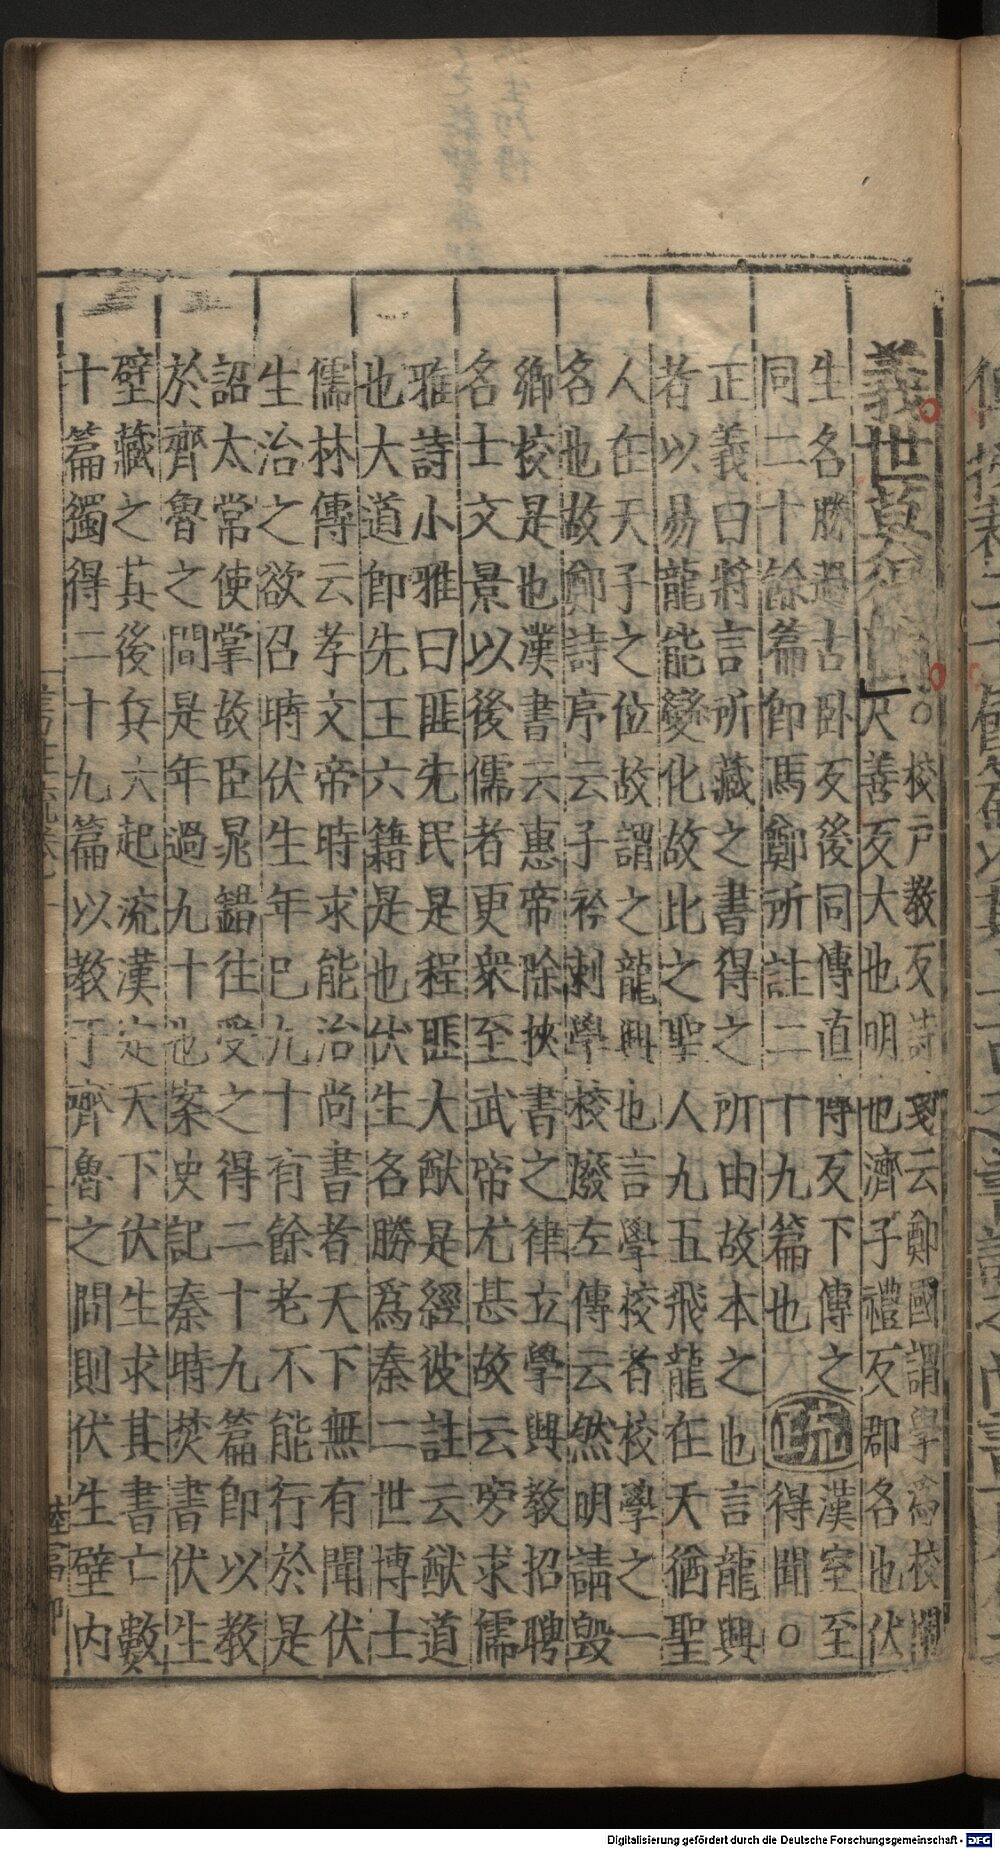 義世莫得聞
○校戶教反詩箋云鄭國謂學爲校
尺善反大也明也濟子禮反郡名也伏
生名勝過古臥反後同傳直專反下傳之
同二十餘篇即馬鄭所註二十九篇也
疏
漢室至
得聞○
正義曰將言所藏之書得之所由故本之也言龍興
者以易龍能變化故比之聖人九五飛龍在天猶聖
人在天子之位故謂之龍興也言學校者校學之一
名也故鄭詩序云子衿刺學校廢左傳云然明請毀
鄉校是也漢書云惠帝除挾書之律立學興教招聘
名士文景以後儒者更衆至武帝尤甚故云旁求儒
雅詩小雅曰匪先民是程匪大猷是經彼註云猷道
也大道即先王六籍是也伏生名勝爲秦二世博士
儒林傳云孝文帝時求能治尚書者天下無有聞伏
生治之欲召時伏生年巳九十有餘老不能行於是
詔太常使掌故臣晁錯往受之得二十九篇即以教
於齊魯之間是年過九十也案史記秦時焚書伏生
壁藏之其後兵火起流漢定天下伏生求其書亡數
十篇獨得二十九篇以教于齊魯之間則伏生壁內
Digitalisierung gefördert durch die Deutsche Forschungsgemeinschaft - DFG